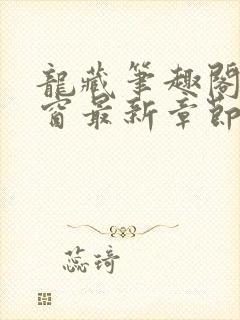 龍藏筆趣閣
窗最新章節
蕊琦